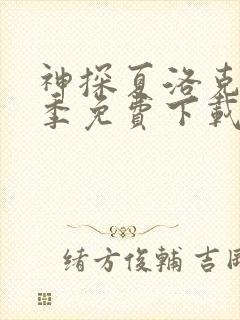 神探夏洛克
季免費下載
緒方俊輔 吉岡